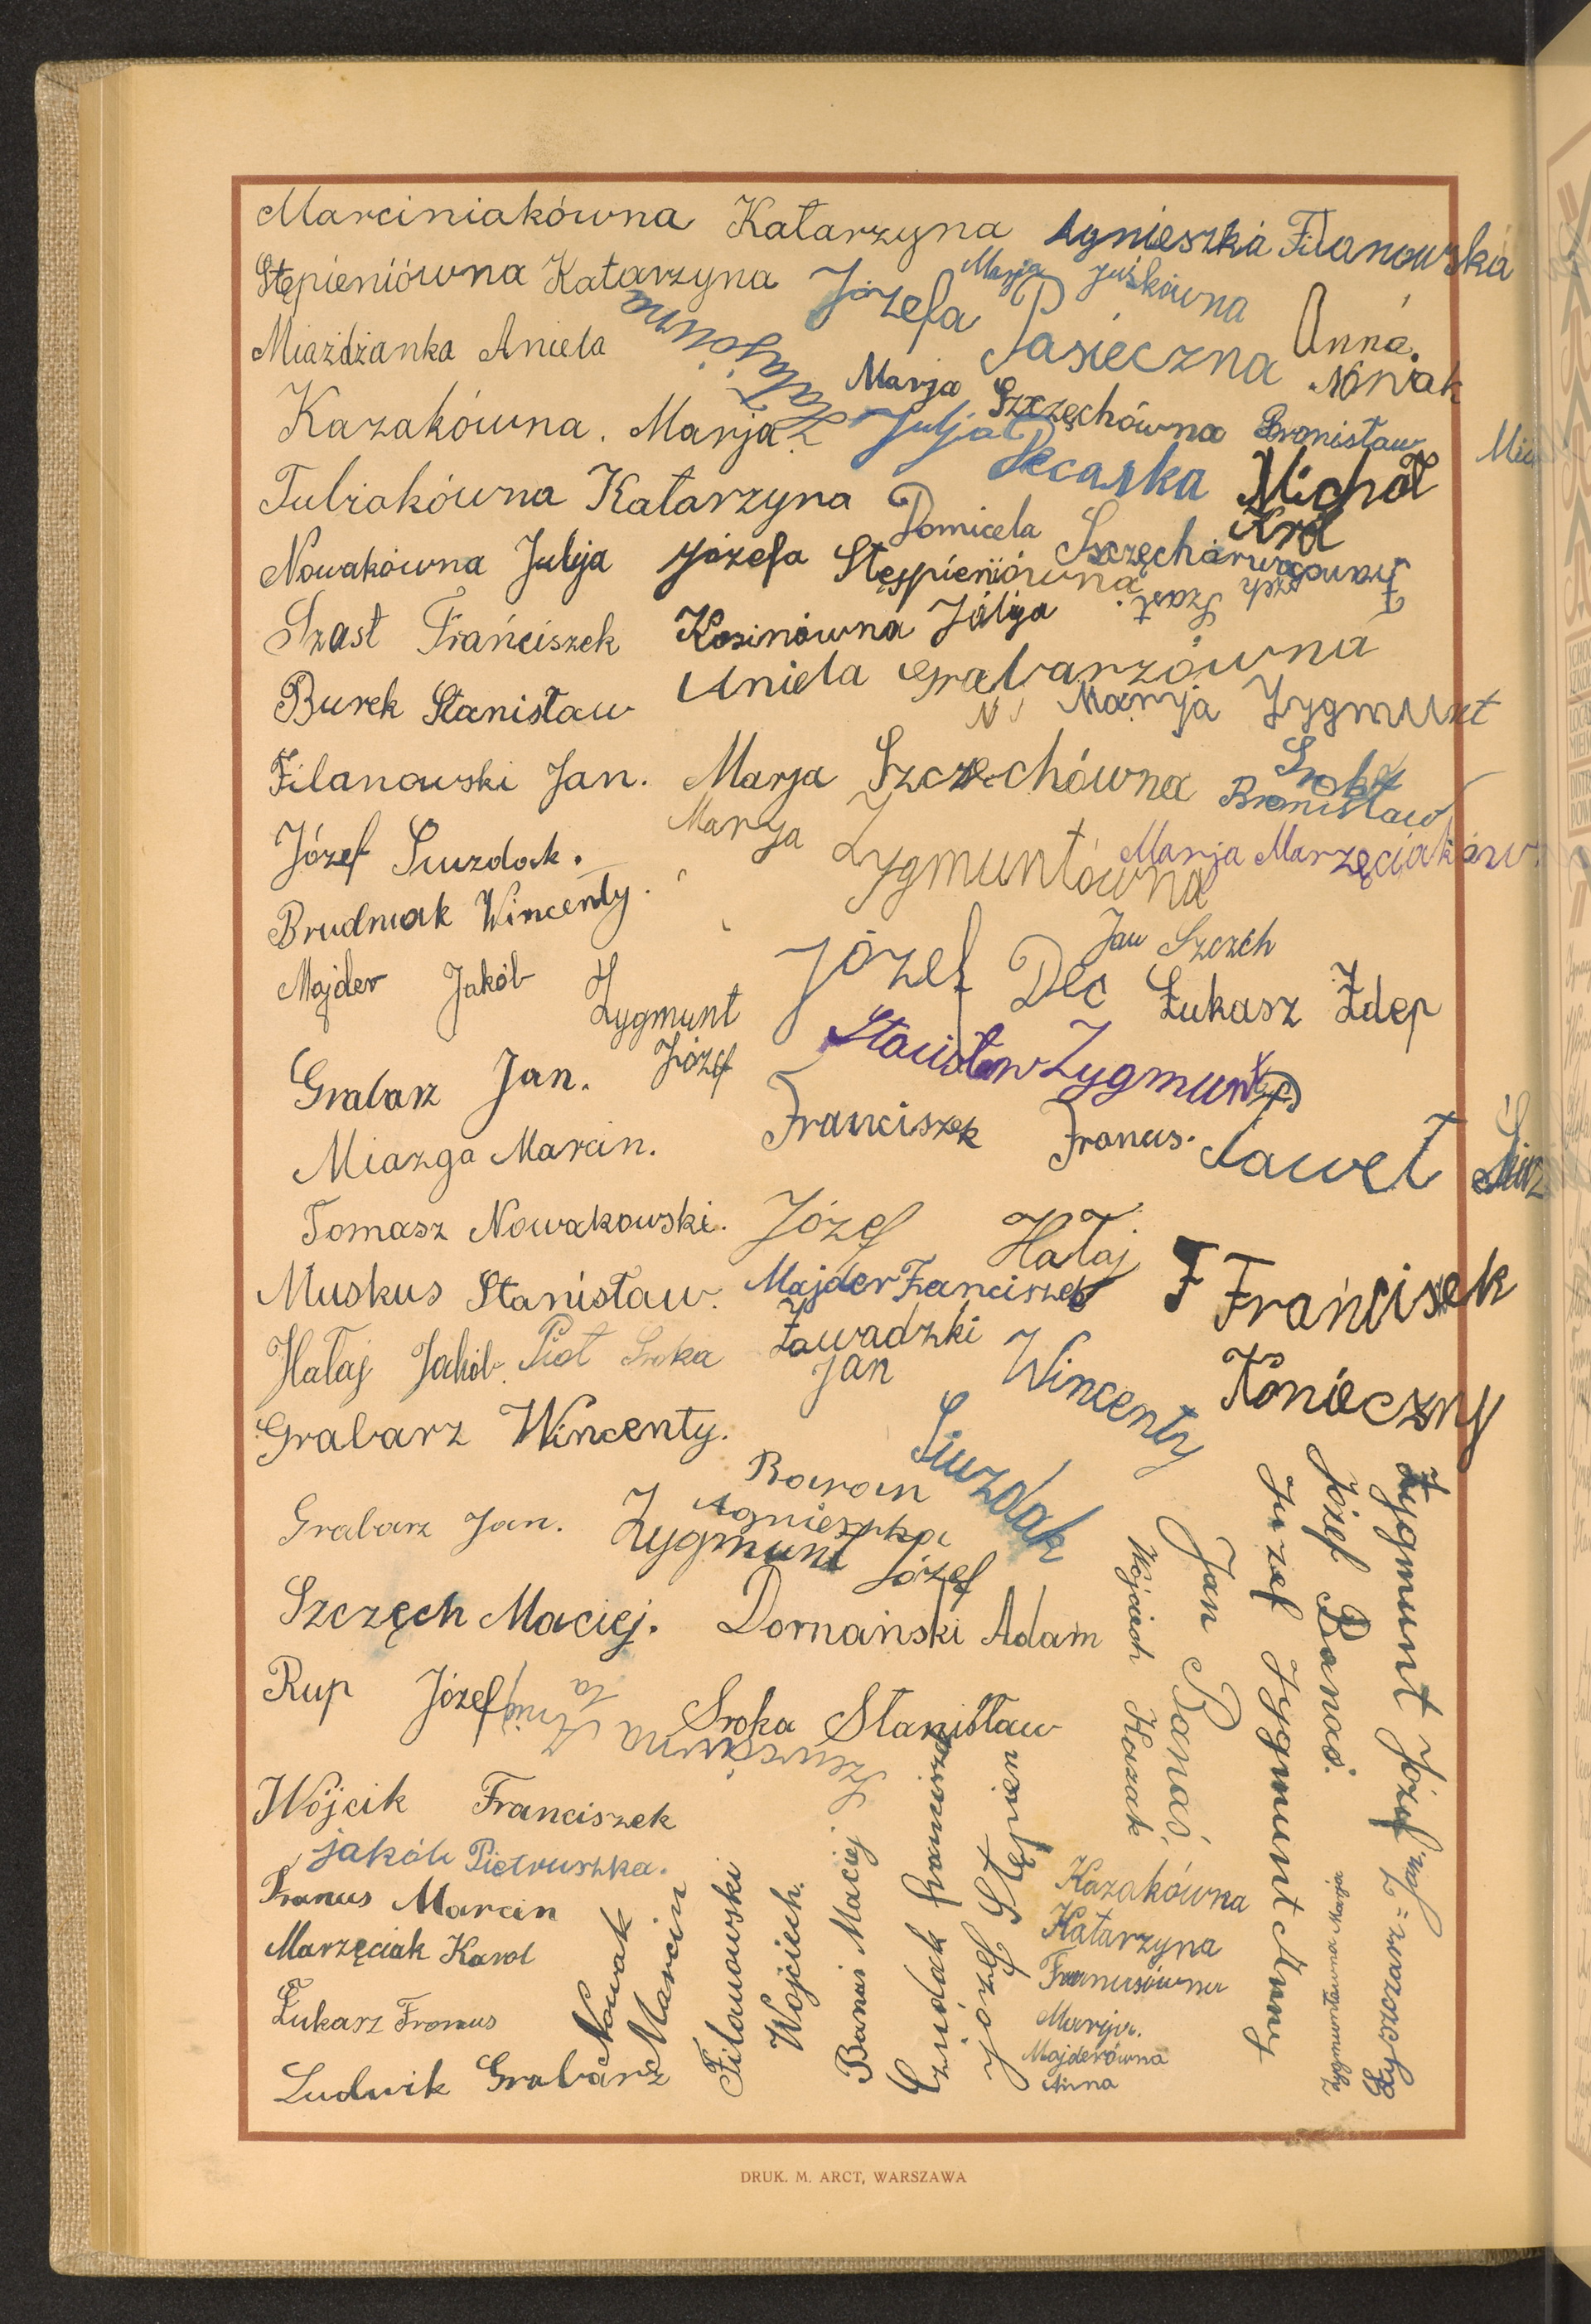 Marciniakówna Katarzyna Agnieszka Filanowska
Stępieniówna Katarzyna
Marja Juśkówna
Józefa Pasieczna
Anna Nowak
Miażdżanka Aniela
Hałajówna
Marja Szczęchówna
Bronisław
Kazakówna. Marja
Julja Pecarska
Michał Król
Tubiakówna Katarzyna
Domicela Szczęchówna
Nowakówna Julja Józefa Stępieniówna
Szast Franciszek
Kosinówna Jólija
Szast
Burek Stanisław
Aniela Grabarzówna
Marja Zygmunt
Filanowski Jan.
Marja Szczechówna
Sroka Bronisław
Józef Suzdak.
Marya Zygmuntówna
Marja Marzęciaków
Brudniak Wincenty.
Jan Szczch
Majder Jakób
Zygmunt Józef
Józef Dec
Łukasz Zdep
Stanisław Zygmunt
Grabarz Jan.
Franciszek Franus.
Paweł
Miazga Marcin.
Tomasz Nowakowski.
Józef Hałaj
Muskus Stanisław.
Majder Franciszek
F Frańcisek Konieczny
Hałaj Jakób.
Piot Sroka
Zawadzki Jan
Wincenty Suzdak
Grabarz Wincenty.
Baran Agnieszka
Grabarz Jan.
Zygmunt Józef
Szczęch Maciej.
Dornański Adam
Rup Józef
Sroka Stanisław
Wójcik Franciszek
jakób Pietruszka.
Franus Marcin
Marzęciak Karol
Łukasz Franus
Ludwik Grabarz
Nowak Marcin
Filanowski Wojciech.
Banaś Maciej
Józef Stępien
Kazakówna Katarzyna
Franusówna Marija.
Majderówna Anna
Wójciech Kazak
Jan Banaś.
Juzef Zygmunt
Józef Banaś.
Zygmunt Józef
Zygmuntówna Marja
DRUK. M. ARCT, WARSZAWA